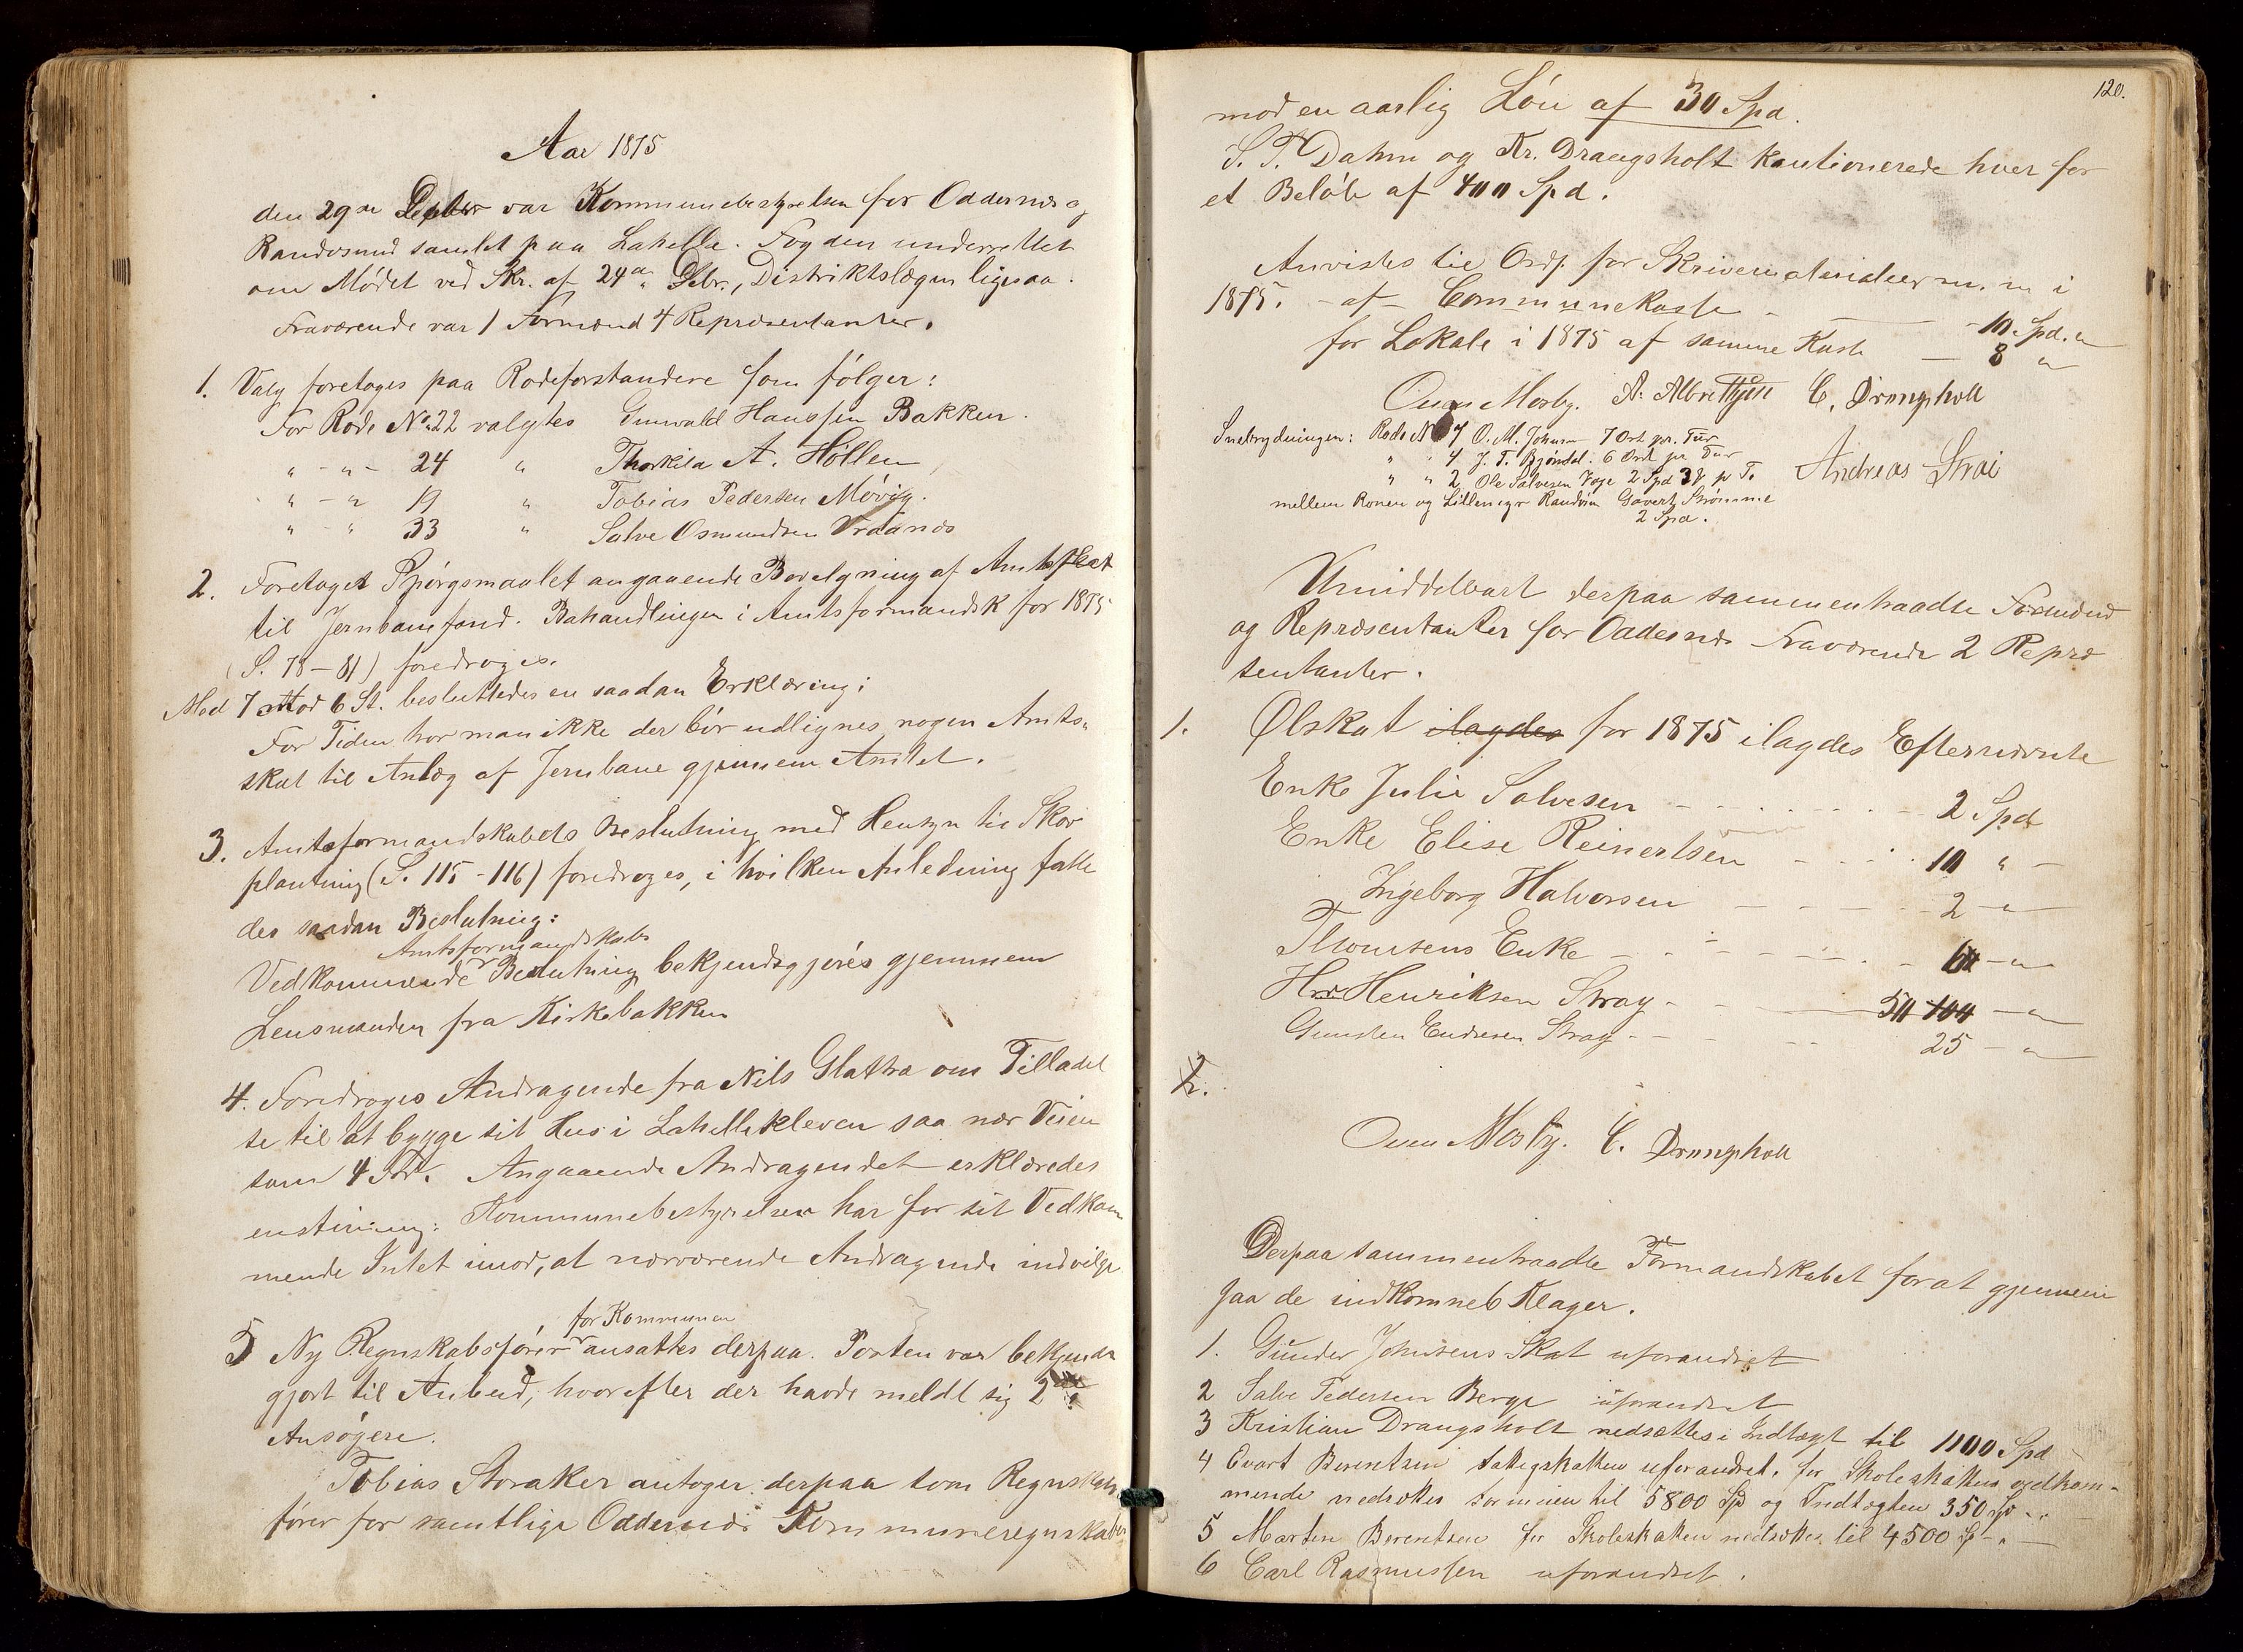 Aar 1875
den 29de Debr var Kommunebestyrelsen for Oddernes og
Randøsund samlet paa Lahelle. Fogden underrettet
om Mødet ved Skr. af 24de Debr., Distriktslægen ligesaa.
Fraværende var 1 Formænd 4 Repræsentanter.
1. Valg foretoges paa Rodeforstandere som følger:
For Rode No 22 valgtes Gunvald Hanssen Bakken.
" - " - 24 " Thorkild A. Hollen
" - " 19 " Tobias Pedersen Møvig.
" - " 33 " Salve Osmundsen Vraanæs
2. Foretoges Spørgsmaalet angaaende Bevilgning af Amtsskat
til Jernbanefond. Behandlingen i Amtsformandsk for 1875
(S. 78-81) foredroges.
Med 7 mod 6 St. besluttedes en saadan Erklæring:
For Tiden tror man ikke der bør udlignes nogen Amts-
skat til Anlæg af Jernbane gjennem Amtet.
3. Amtsformandskabets Beslutning med Hensyn til Skov
plantning (S. 115-116) foredroges, i hvilken Anledning fatte
des saadan Beslutning:
Amtsformandskabs
Vedkommende Beslutning bekjendtgjøres gjennem
Lensmanden fra Kirkebakken
4. Foredroges Andragende fra Nils Glattra om Tilladel
se til at bygge sit Hus i Lahellekleven saa nær Veien
som 4 Fod. Angaaende Andragendet erklæredes
enstemmig: Kommunebestyrelsen har for sit Vedkom
mende Intet imod, at nærværende Andragende indvilges
for Kommunen
5 Ny Regnskabsfører ansattes derpaa. Posten var bekjendt
gjort til Anbud, hvorefter der havde meldt sig 2
Ansøgere.
Tobias Storaker antoges derpaa som Regnskabs
fører for samtlige Oddernes Kommuneregnskaber
120.
mod en aarlig Løn af 30 Spd.
S. T. Dahm og Kr. Drangsholt kautionerede hver for
et Beløb af 400 Spd.
Anvistes til Ordf. for Skrivematerialier m. m i
1875. - af Communekasse - 10 Spd. "
for Lokale i 1875 af samme Kasse - 8 "
Ouen Mosby. A. Albrethsen C. Drangsholt
Snebrydningen: Rode No 7 O. M. Johnsen 7 Ort pr. Tur
" " 4 J. T. Bjørndal. 6 Ort pr Tur
" " 2 Ole Salvesen Foge 2 Spd 3 ß pr T. Andreas Strai
mellem Ronen og Lillemyr Randøen Govert Strømme
2 Spd.
Umiddelbart derpaa sammentraadte Formænd
og Repræsentanter for Oddernes Fraværende 2 Repræ
sentanter.
1. Ølskat ilagdes for 1875 ilagdes Efternævnte
Enke Julie Salvesen - - - 2 Spd
Enke Elise Reinertsen - - - 10 " -
Ingeborg Halvorsen - - - 2 - "
Thomsens Enke - - - 60 - "
Hr Henriksen Stray - - 50 100 - "
Gunsten Endresen Stray - - - 25 - "
2.
Ouen Mosby. C. Drangsholt
Derpaa sammentraadte Formandskabet for at gjennem
gaa de indkomne 6 Klager.
1. Gunder Johnsens Skat uforandret
2 Salve Pedersen Berge uforandret
3 Kristian Drangsholt nedsættes i Indtægt til 1100 Spd
4 Evart Berentsen fattigskatten uforandret, for Skoleskattens vedkom-
mende nedsættes Formuen til 5800 Sp og Indtægten 350 Sp - "
5 Marten Berentsen for Skoleskatten nedsættes til 4500 Sp - "
6 Carl Rasmussen uforandret.